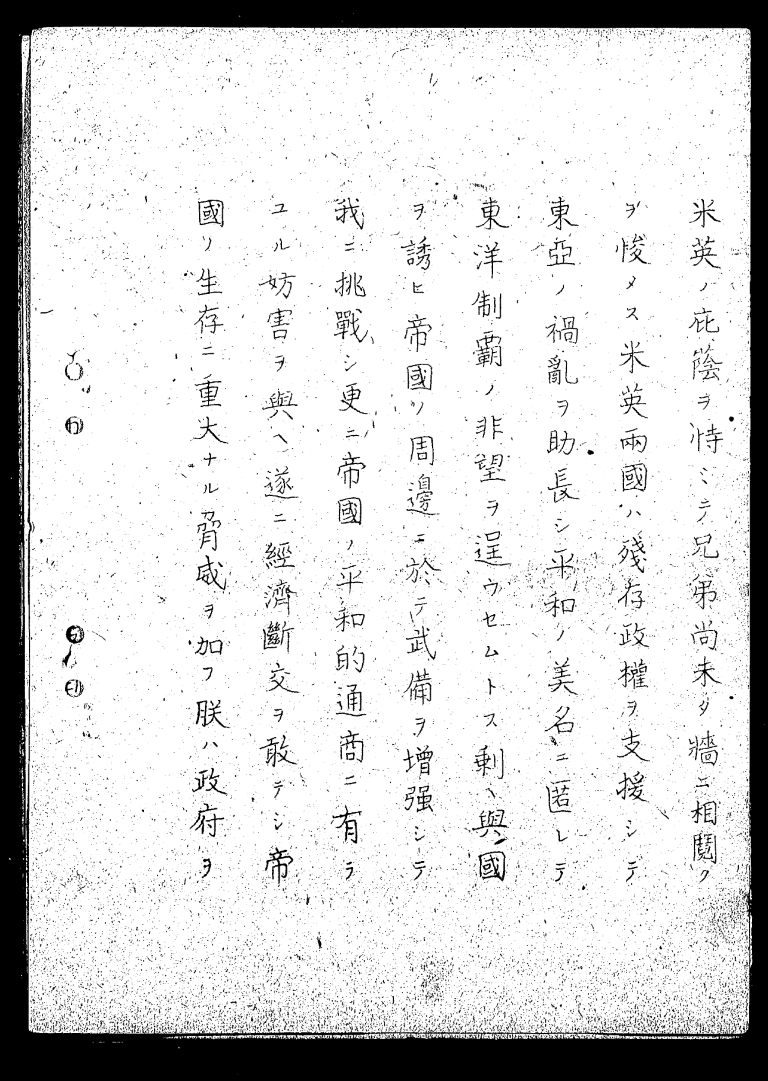 米英ノ庇蔭ヲ恃ミテ兄弟尚未タ牆ニ相鬩ク
ヲ悛メス米英兩國ハ殘存政權ヲ支援シテ
東亞ノ禍亂ヲ助長シ平和ノ美名ニ匿レテ
東洋制霸ノ非望ヲ逞ウセムトス剩ヘ與國
ヲ誘ヒ帝國ノ周邊ニ於テ武備ヲ增强シテ
我ニ挑戰シ更ニ帝國ノ平和的通商ニ有ラ
ユル妨害ヲ與ヘ遂ニ經濟斷交ヲ敢テシ帝
國ノ生存ニ重大ナル脅威ヲ加フ朕ハ政府ヲ